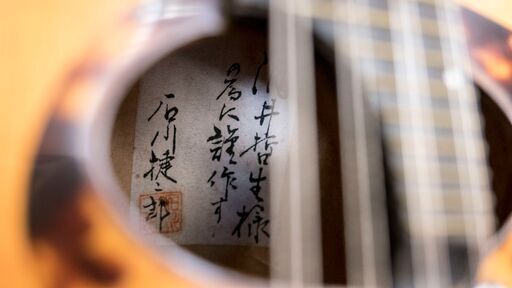 井哲生様
の為に謹作す
石川捷二郎